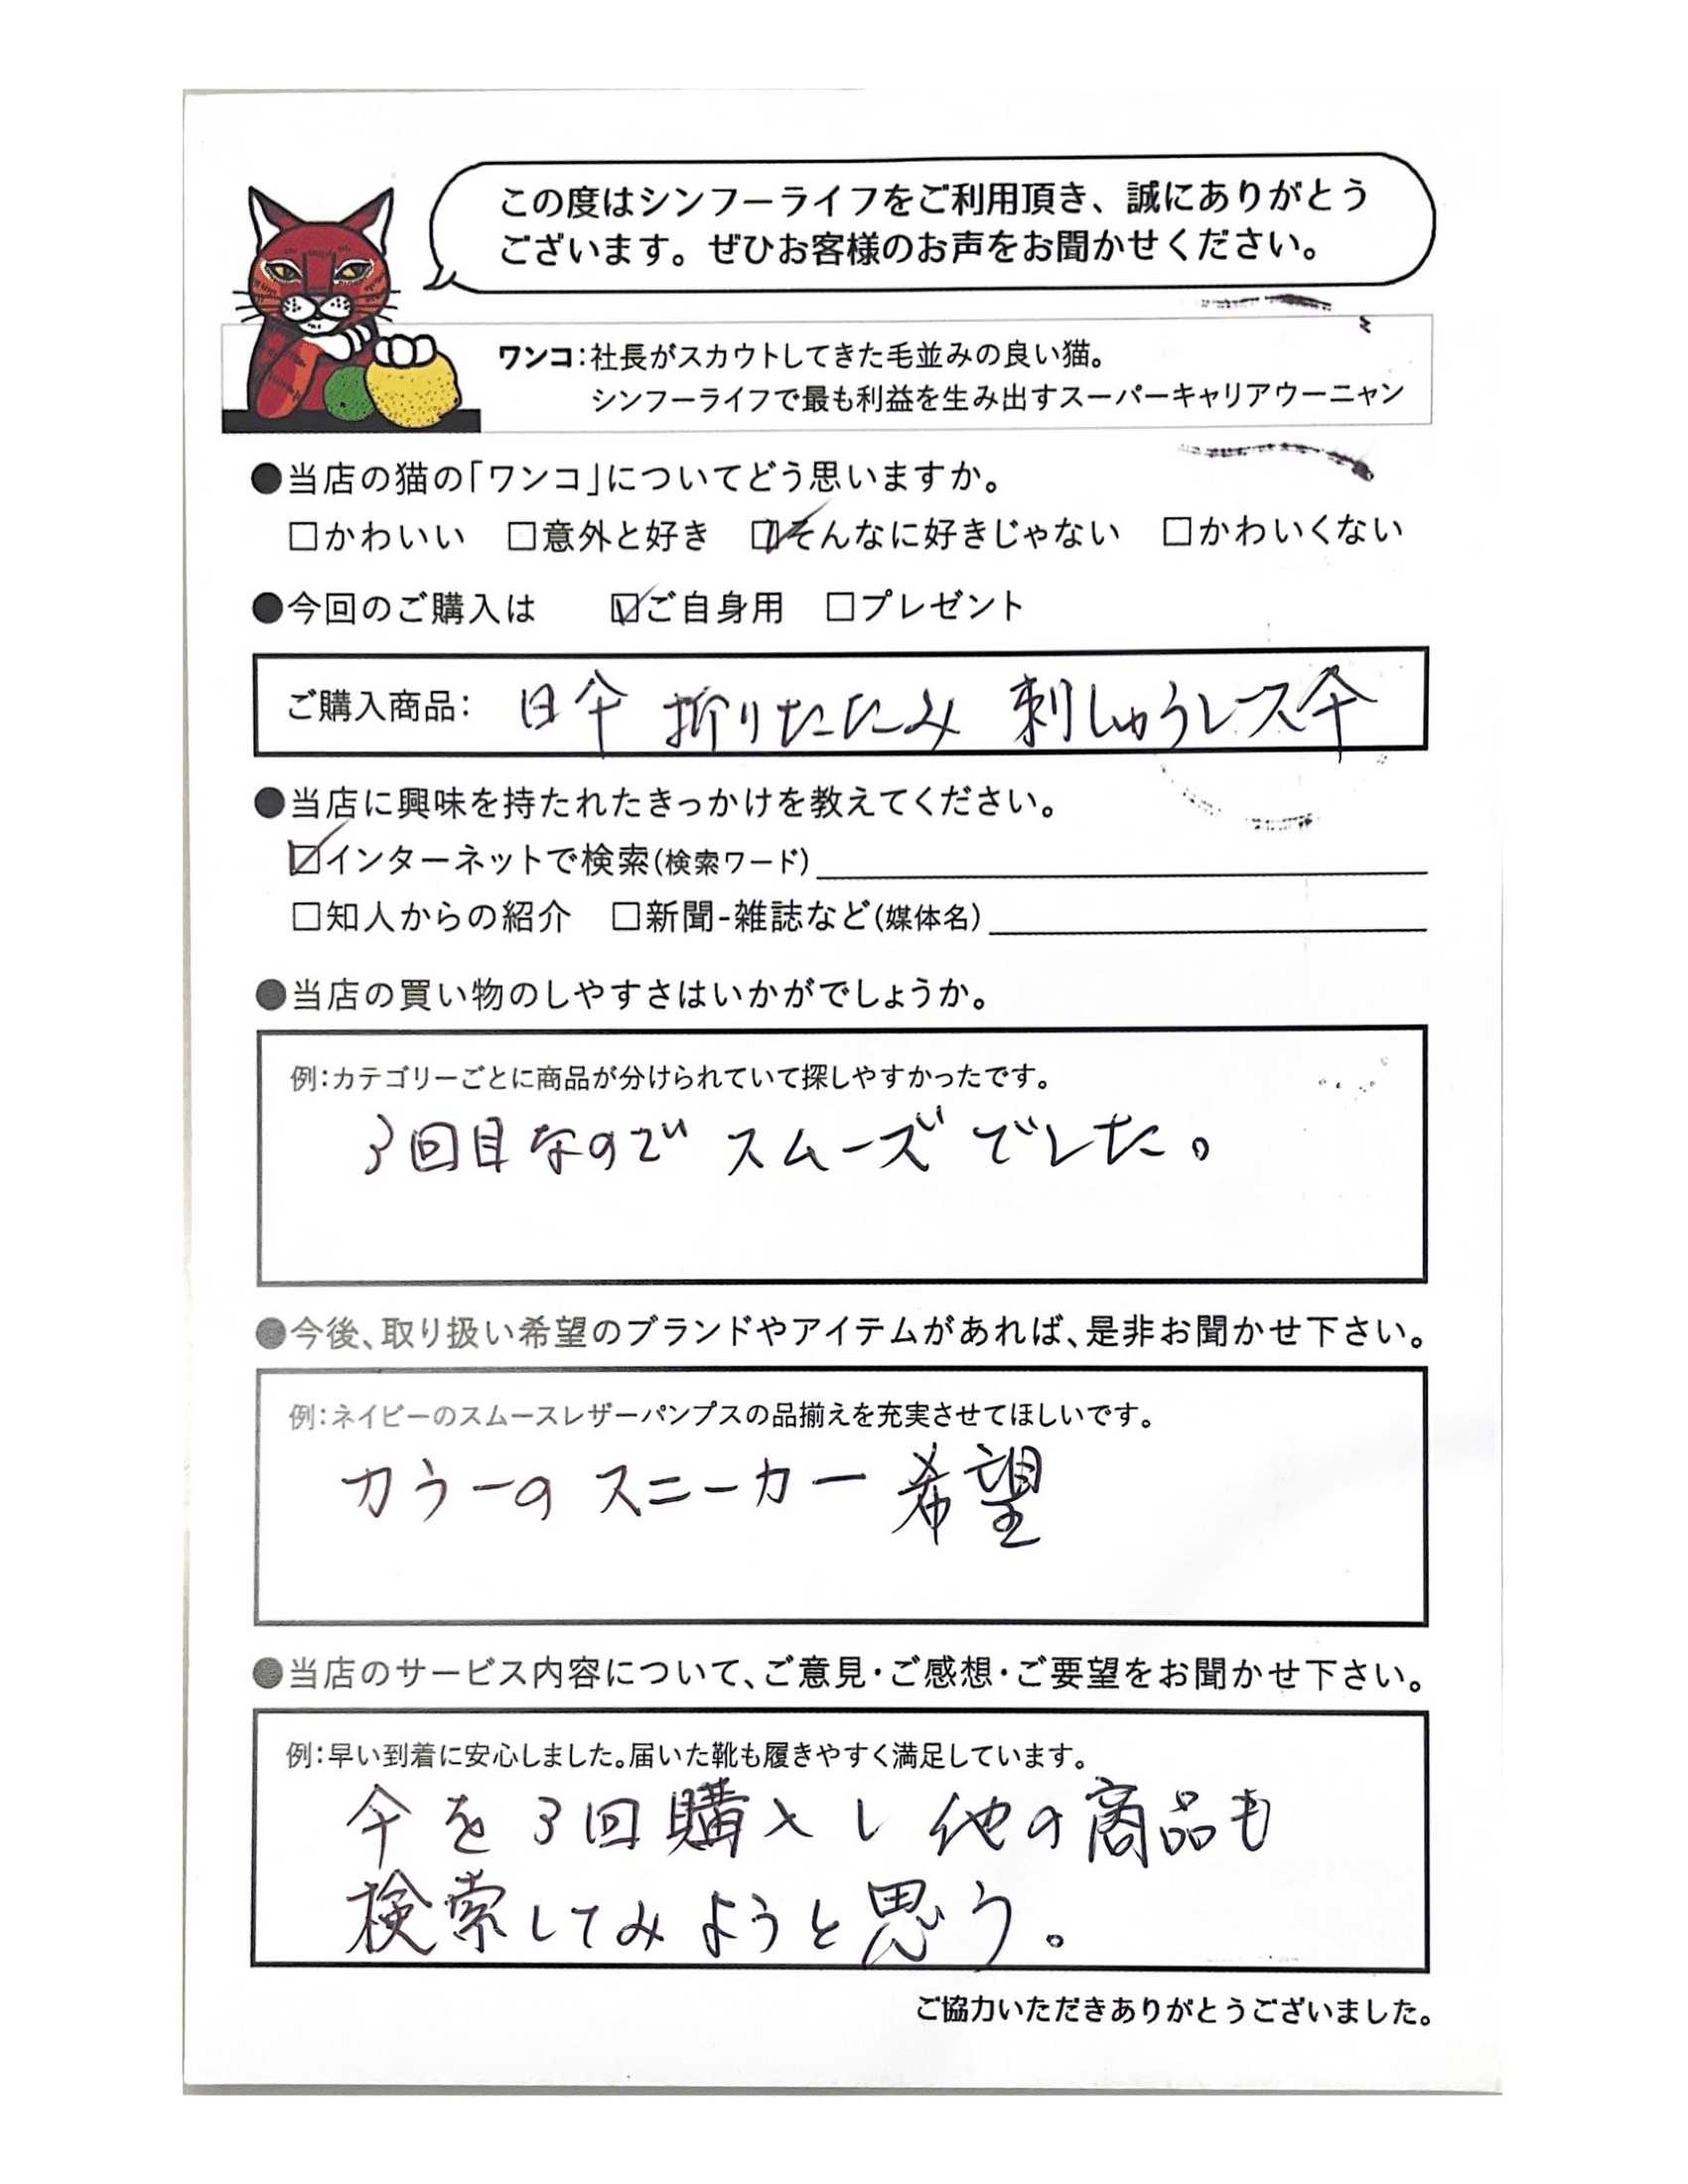 この度はシンフーライフをご利用頂き、誠にありがとう
ございます。ぜひお客様のお声をお聞かせください。
ワンコ：社長がスカウトしてきた毛並みの良い猫。
シンフーライフで最も利益を生み出すスーパーキャリアウーニャン
●当店の猫の「ワンコ」についてどう思いますか。
□かわいい □意外と好き ☑そんなに好きじゃない □かわいくない
●今回のご購入は ☑ご自身用 □プレゼント
ご購入商品： 日傘 折りたたみ 刺しゅうレース傘
●当店に興味を持たれたきっかけを教えてください。
☑インターネットで検索(検索ワード)
□知人からの紹介 □新聞-雑誌など(媒体名)
●当店の買い物のしやすさはいかがでしょうか。
例：カテゴリーごとに商品が分けられていて探しやすかったです。
3回目なので スムーズでした。
●今後、取り扱い希望のブランドやアイテムがあれば、是非お聞かせ下さい。
例：ネイビーのスムースレザーパンプスの品揃えを充実させてほしいです。
カラーの スニーカー 希望
●当店のサービス内容について、ご意見・ご感想・ご要望をお聞かせ下さい。
例：早い到着に安心しました。届いた靴も履きやすく満足しています。
傘を3回購入し 他の商品も
検索してみようと思う。
ご協力いただきありがとうございました。